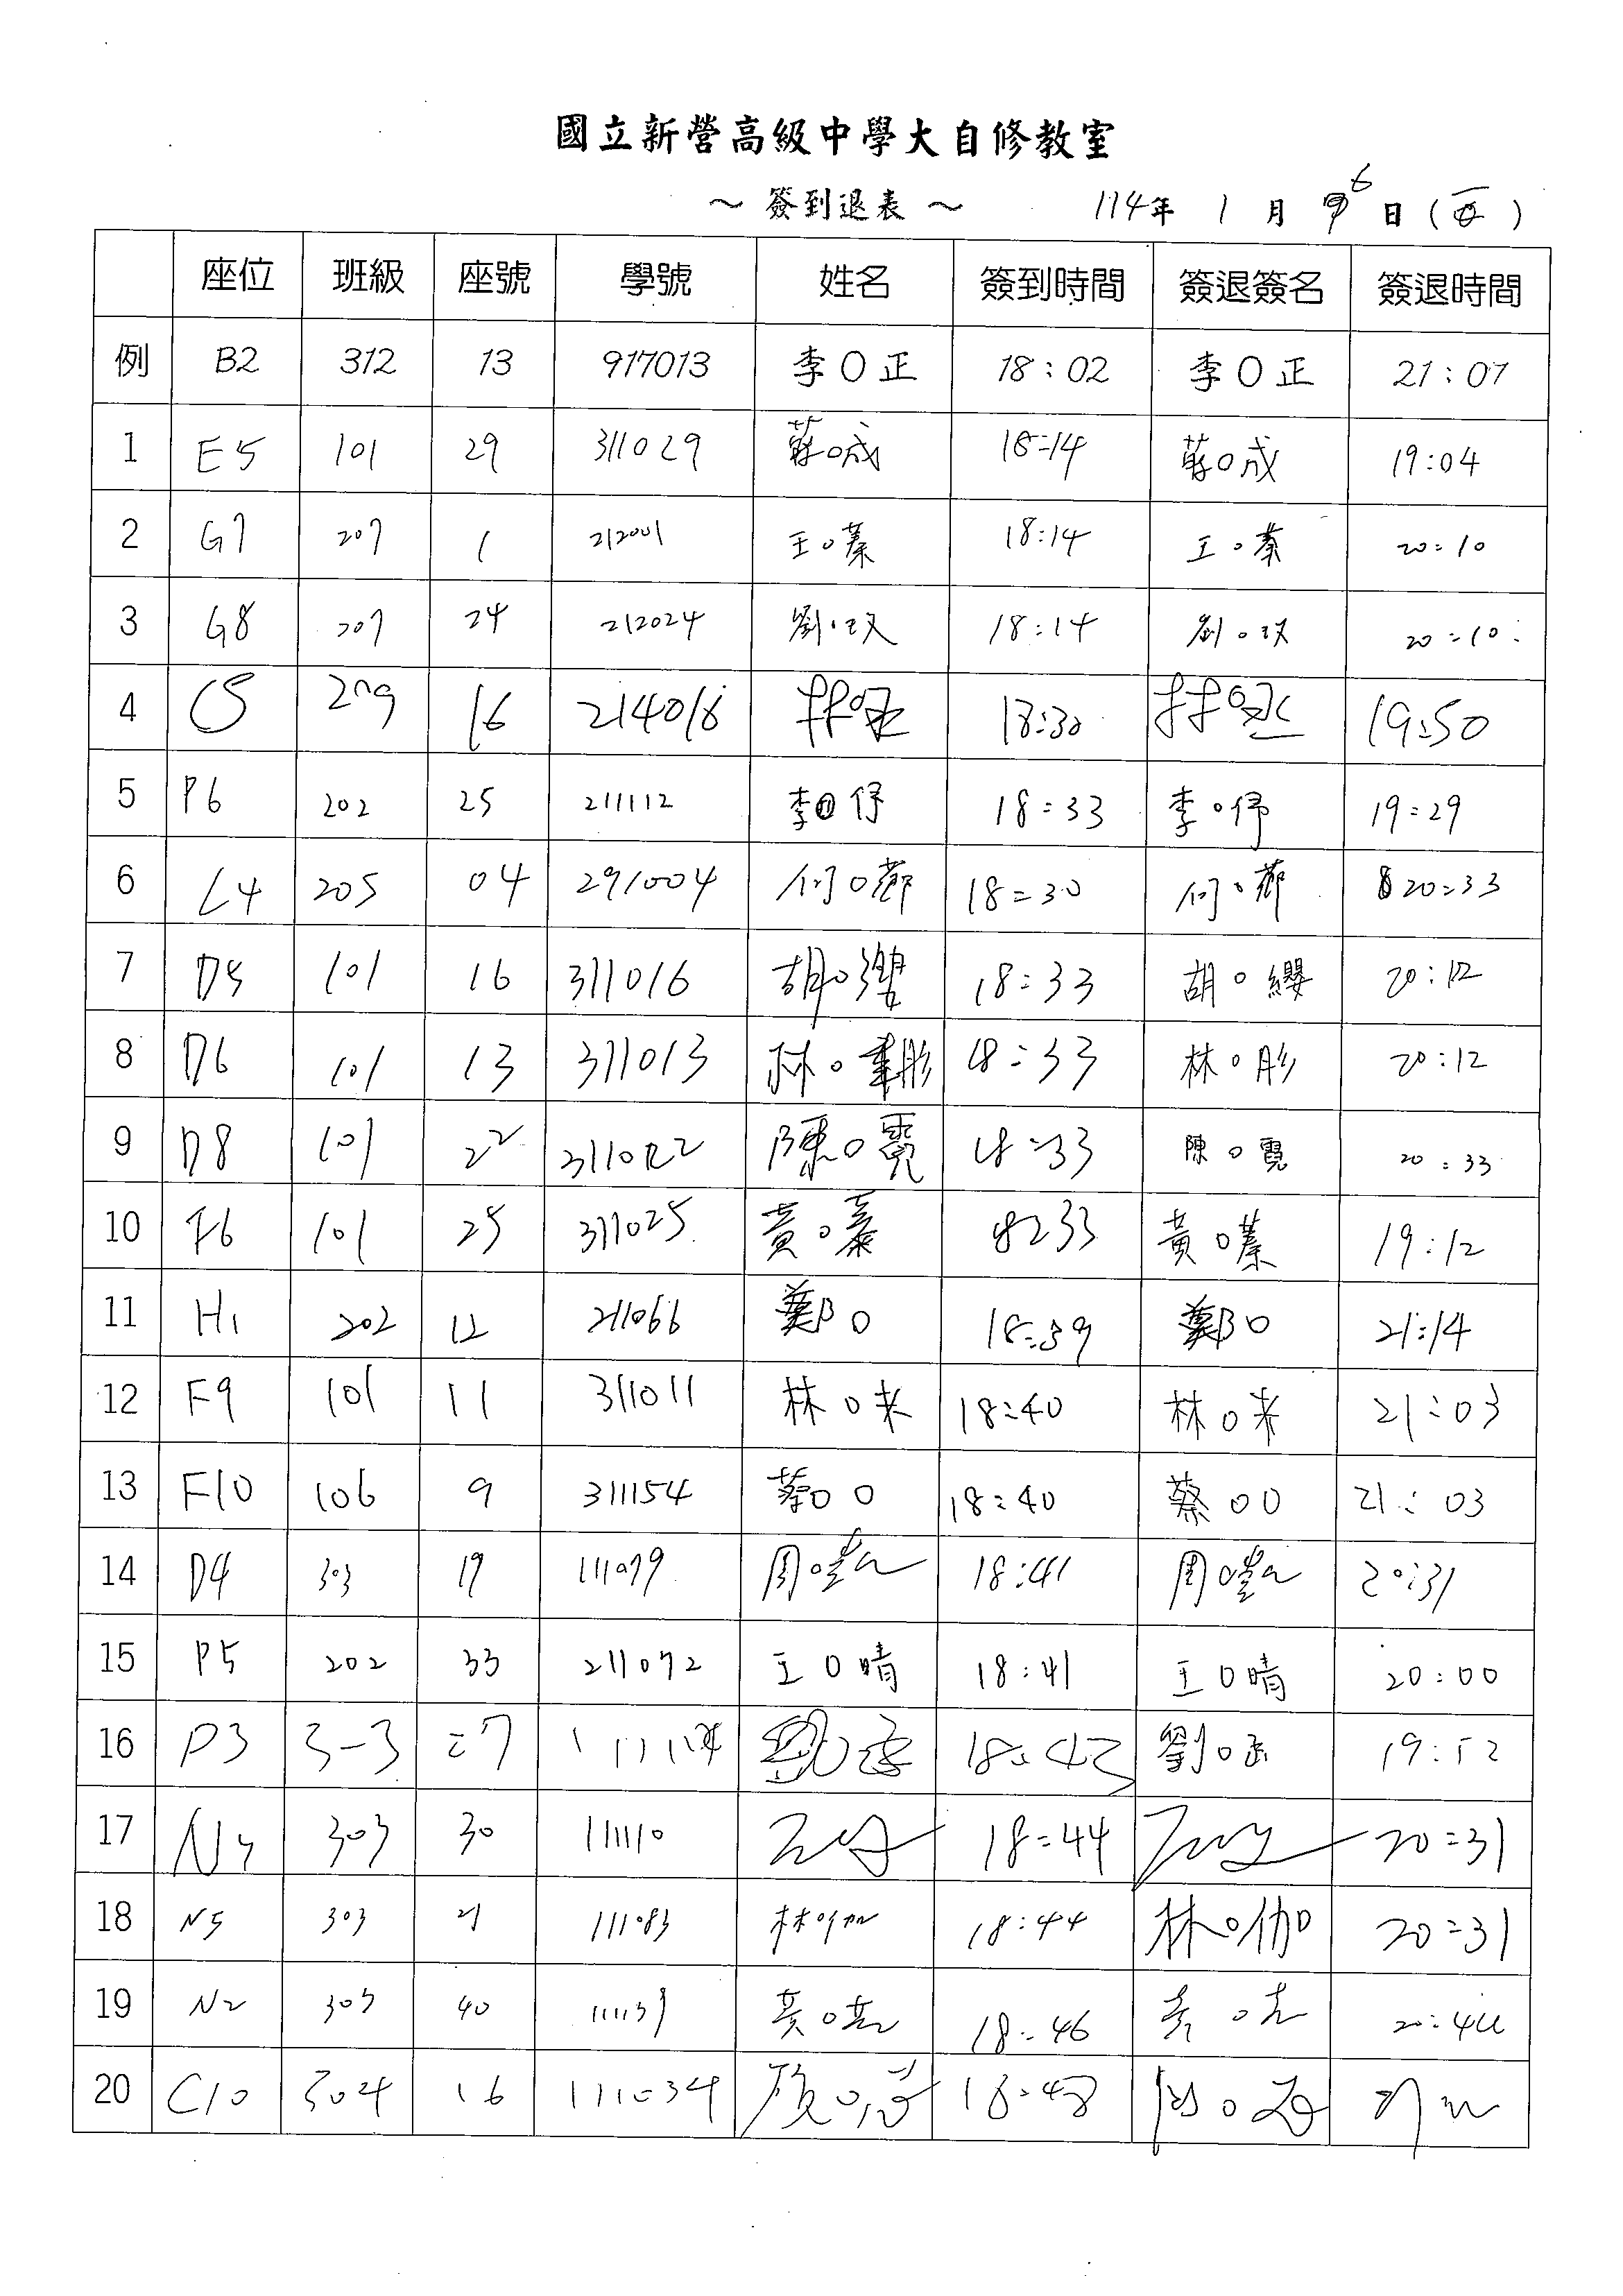 國立新營高級中學大自修教室
～ 簽到退表 ～ 114年 1 月 6 日 (一)
座位 班級 座號 學號 姓名 簽到時間 簽退簽名 簽退時間
例 B2 312 13 917013 李○正 18:02 李○正 21:07
1 E5 101 29 311029 蔣○成 18:14 蔣○成 19:04
2 G7 207 1 212001 王○蓁 18:14 王○蓁 20:10
3 G8 207 24 212024 劉○玟 18:14 劉○玟 20:10
4 C5 209 16 214016 林○ 18:30 林○ 19:50
5 P6 202 25 211112 李○伃 18:33 李○伃 19:29
6 L4 205 04 291004 何○薌 18:30 何○薌 20:33
7 D5 101 16 311016 胡○纓 18:33 胡○纓 20:12
8 D6 101 13 311013 林○彤 18:33 林○彤 20:12
9 D8 101 22 311022 陳○霓 18:33 陳○霓 20:33
10 F6 101 25 311025 黃○蓁 18:33 黃○蓁 19:12
11 H1 202 12 211066 鄭○ 18:39 鄭○ 21:14
12 F9 101 11 311011 林○ 18:40 林○ 21:03
13 F10 106 9 311154 蔡○○ 18:40 蔡○○ 21:03
14 D4 303 19 111079 周○ 18:41 周○ 20:31
15 P5 202 33 211072 王○晴 18:41 王○晴 20:00
16 P3 3-3 27 劉○ 19:52
17 303 30 111110 18:44 20:31
18 N5 303 21 111083 林○伽 18:44 林○伽 20:31
19 N2 303 40 黃○ 18:46 20:44
20 C10 304 16 111034 18:48